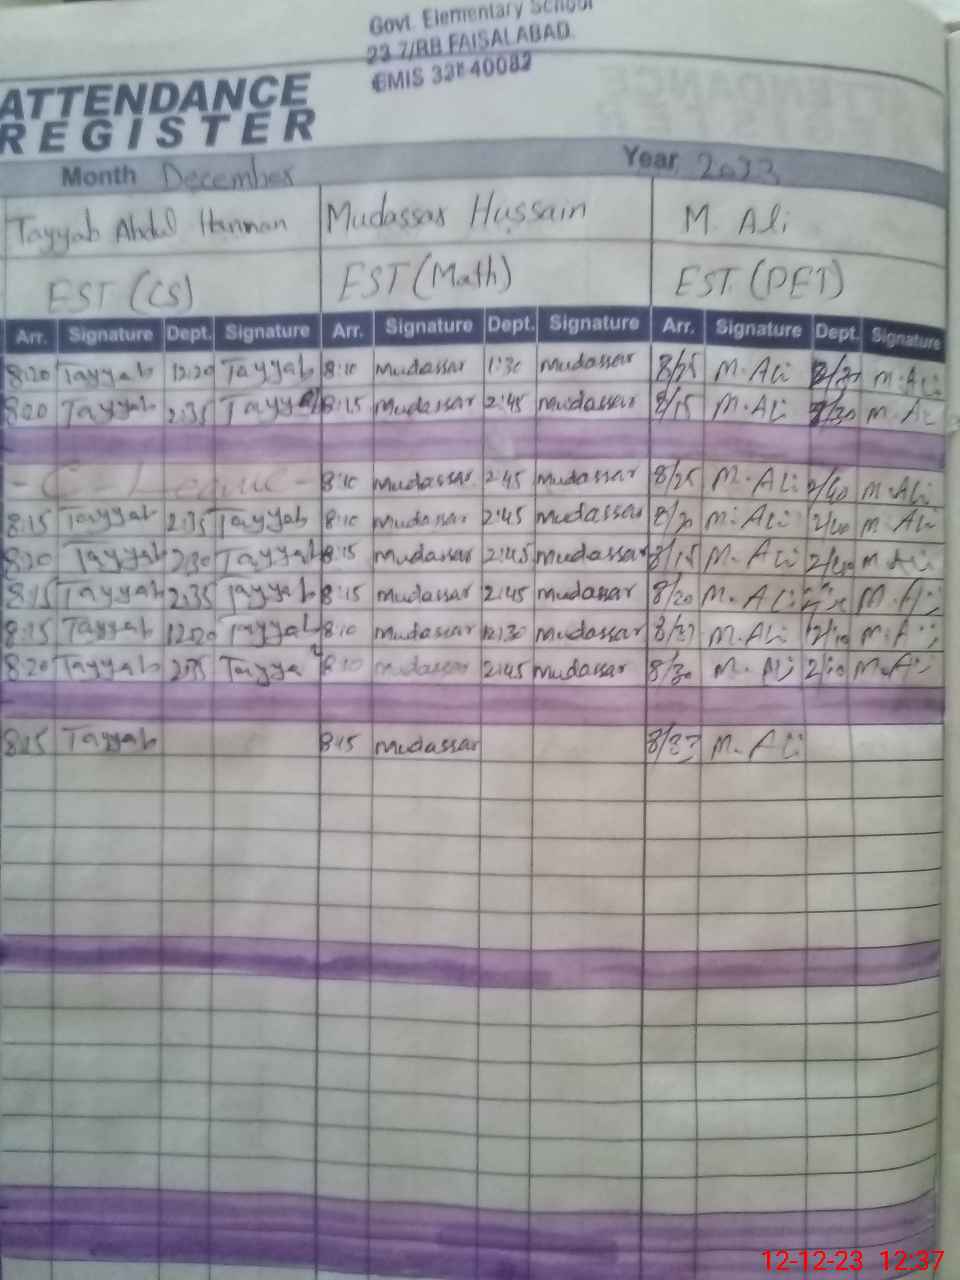 Govt. Elementary School
23 7/RB FAISALABAD.
EMIS 33140082
ATTENDANCE
REGISTER
Month December Year 2023
Tayyab Abdul Hannan Mudassar Hussain M. Ali
EST (CS) EST (Math) EST (PET)
Arr. Signature Dept. Signature Arr. Signature Dept. Signature Arr. Signature Dept. Signature
8:20 Tayyab 12:20 Tayyab 8:10 Mudassar 1:30 Mudassar 8/25 M. Ali M. Ali
8:20 Tayyab 2:35 Tayyab 8:15 Mudassar 2:45 Mudassar 8/15 M. Ali M. Ali
- C - Leave - 8:10 Mudassar 2:45 Mudassar 8/25 M. Ali 2/40 M. Ali
8:15 Tayyab 2:35 Tayyab 8:10 Mudassar 2:45 Mudassar 8/20 M. Ali 2/40 M. Ali
8:20 Tayyab 2:30 Tayyab 8:15 Mudassar 2:45 Mudassar 8/15 M. Ali 2/40 M. Ali
8:15 Tayyab 2:35 Tayyab 8:15 Mudassar 2:45 Mudassar 8/20 M. Ali M. Ali
8:15 Tayyab 12:20 Tayyab 8:10 Mudassar 12:30 Mudassar M. Ali M. Ali
8:20 Tayyab 2:35 Tayyab 8:10 Mudassar 2:45 Mudassar 8/30 M. Ali M. Ali
8:15 Tayyab 8:15 Mudassar M. Ali
12-12-23 12:37